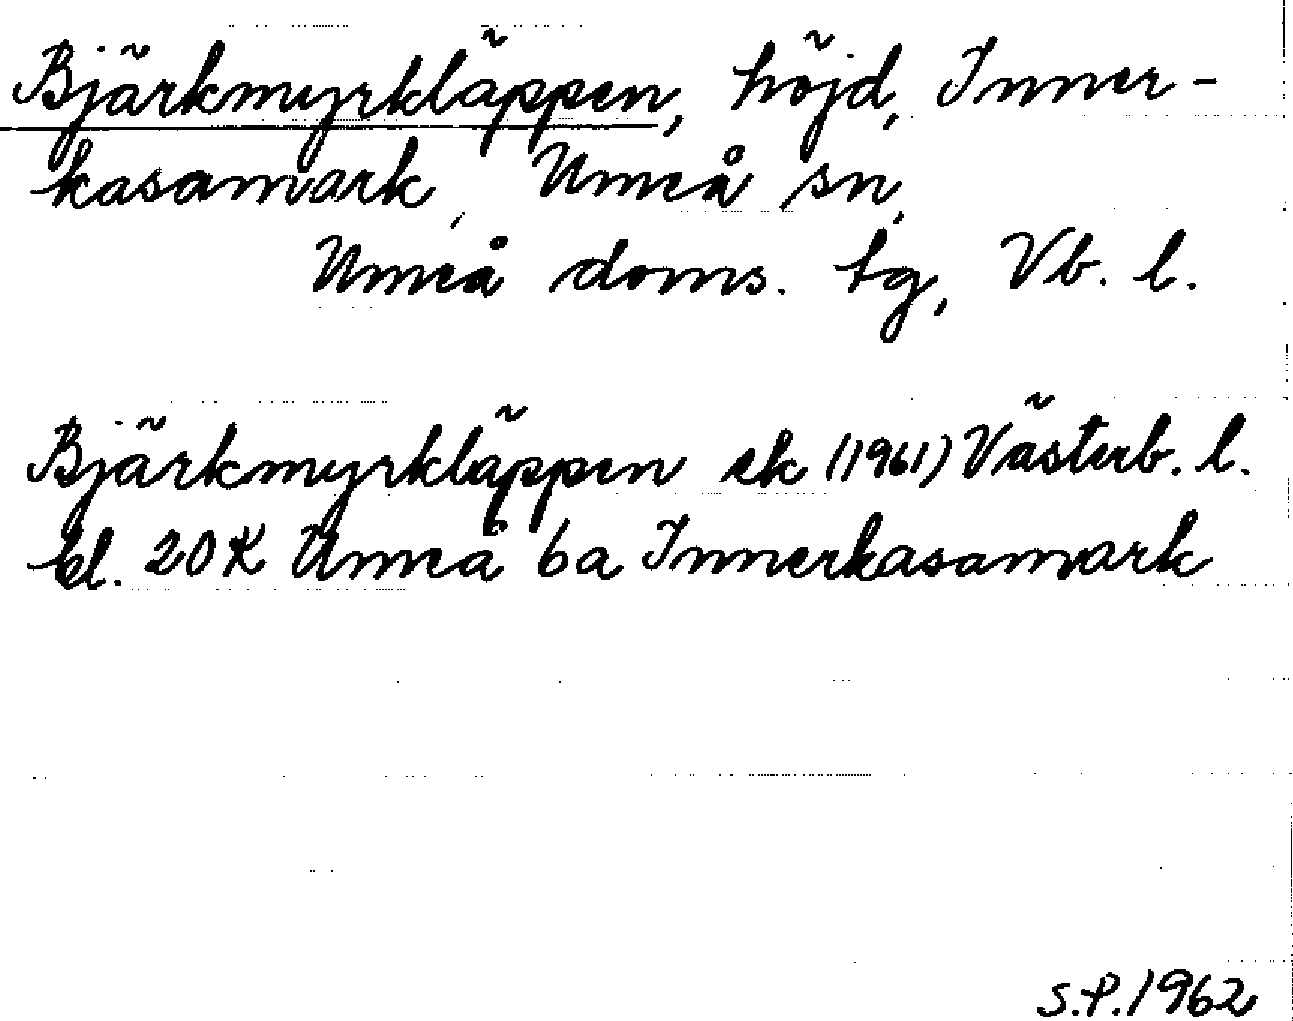 Bjärkmyrkläppen, höjd, Inner-
kasamark, Umeå sn,
Umeå doms. tg, Vb. l.
Bjärkmyrkläppen ek (1961) Västerb. l.
bl. 20 K Umeå 6a Innerkasamark
S.P. 1962